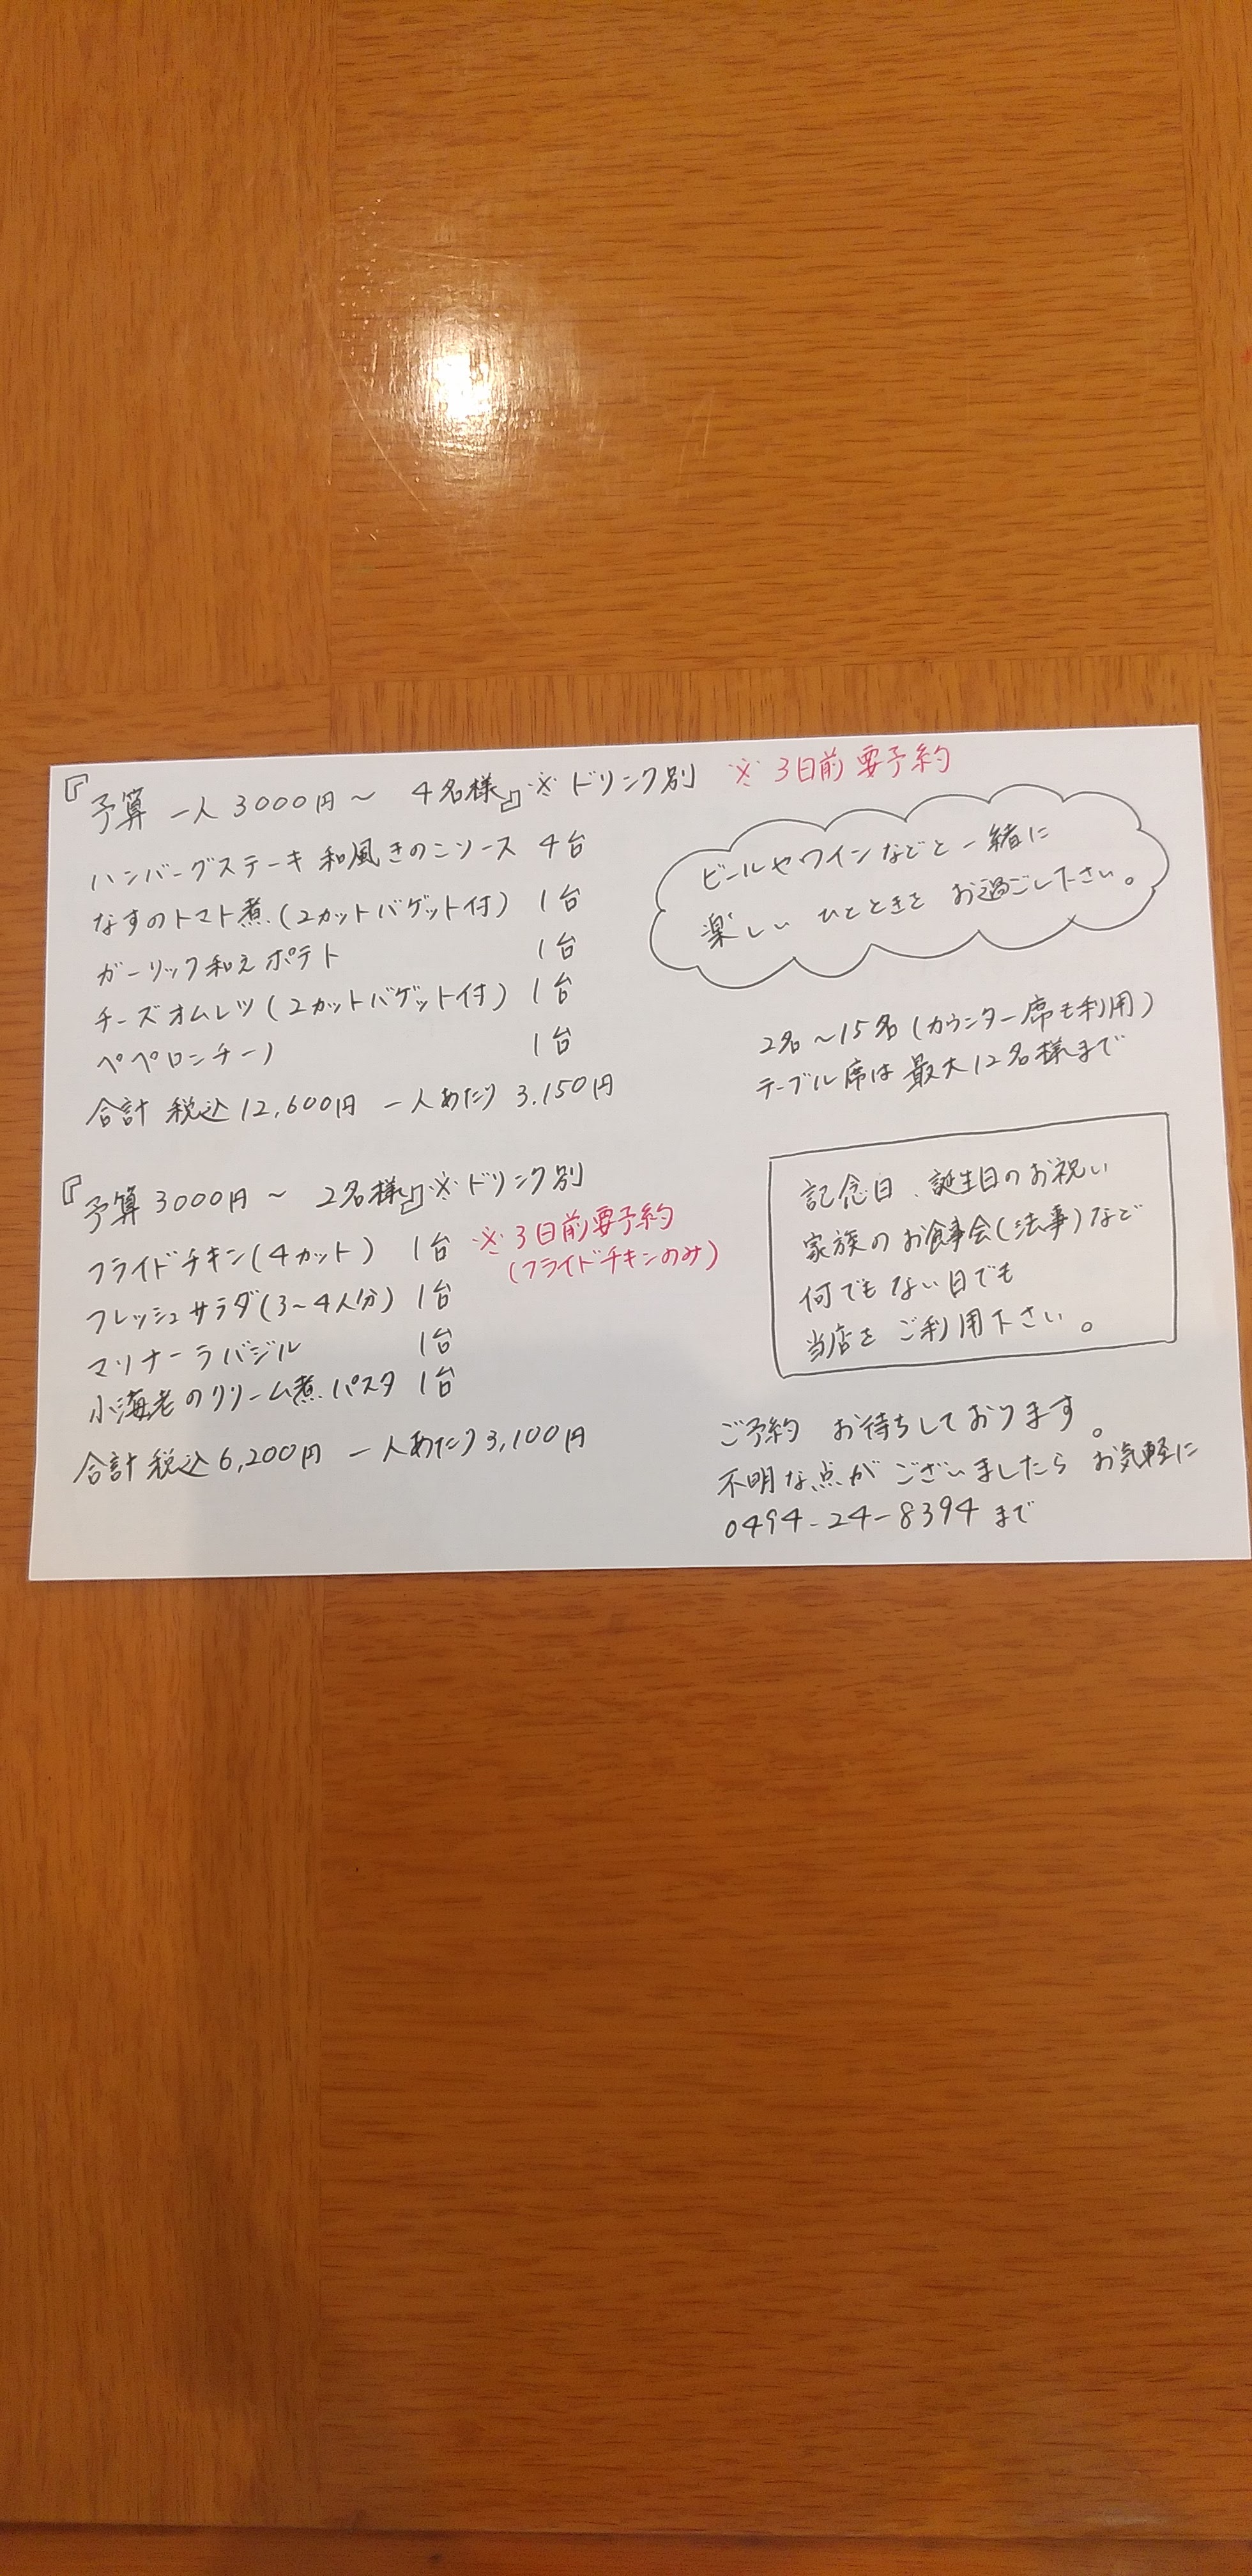 『予算 一人3000円～ 4名様』※ドリンク別 ※3日前要予約
ハンバーグステーキ 和風きのこソース 4台
なすのトマト煮(2カットバゲット付) 1台
ガーリック和えポテト 1台
チーズオムレツ(2カットバゲット付) 1台
ペペロンチーノ 1台
合計 税込12,600円 一人あたり 3,150円
『予算3000円～ 2名様』※ドリンク別
フライドチキン(4カット) 1台 ※3日前要予約
(フライドチキンのみ)
フレッシュサラダ(3~4人分) 1台
マリナーラバジル 1台
小海老のクリーム煮パスタ 1台
合計 税込6,200円 一人あたり3,100円
ビールやワインなどと一緒に
楽しい ひとときを お過ごし下さい。
2名～15名(カウンター席も利用)
テーブル席は最大12名様まで
記念日、誕生日のお祝い
家族のお食事会(法事)など
何でもない日でも
当店を ご利用下さい。
ご予約 お待ちしております。
不明な点が ございましたら お気軽に
0494-24-8394 まで